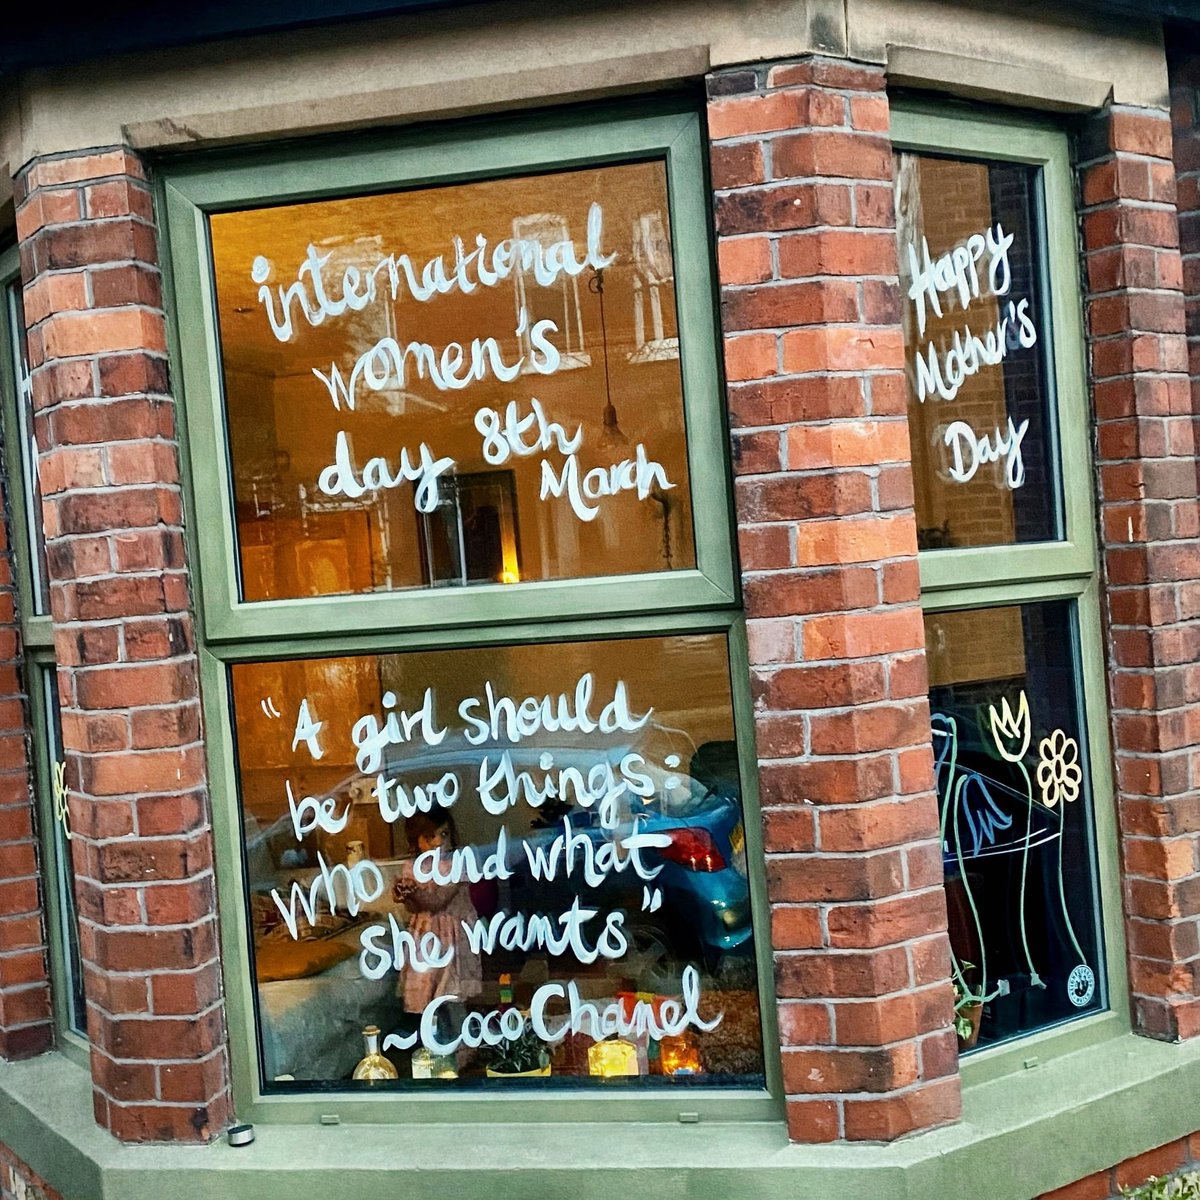 international
women's
day 8th
March
"A girl should
be two things:
who and what
she wants"
~Coco Chanel
Happy
Mother's
Day